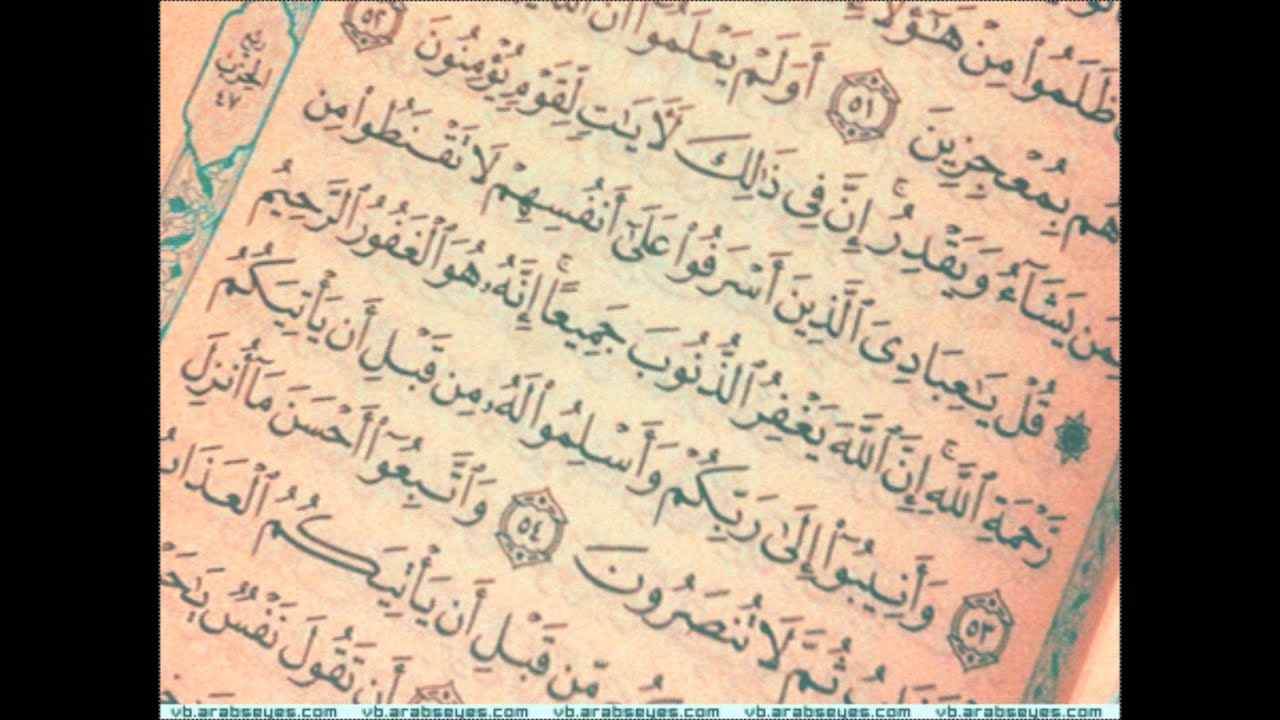 ظَلَمُوا۟ مِنْ هَـٰٓؤُلَآءِ
هُم بِمُعْجِزِينَ ٥١ أَوَلَمْ يَعْلَمُوٓا۟ أَنَّ ٱللَّهَ
لِمَن يَشَآءُ وَيَقْدِرُ ۚ إِنَّ فِى ذَٰلِكَ لَـَٔايَـٰتٍ لِّقَوْمٍ يُؤْمِنُونَ ٥٢
قُلْ يَـٰعِبَادِىَ ٱلَّذِينَ أَسْرَفُوا۟ عَلَىٰٓ أَنفُسِهِمْ لَا تَقْنَطُوا۟ مِن
رَّحْمَةِ ٱللَّهِ ۚ إِنَّ ٱللَّهَ يَغْفِرُ ٱلذُّنُوبَ جَمِيعًا ۚ إِنَّهُۥ هُوَ ٱلْغَفُورُ ٱلرَّحِيمُ
٥٣ وَأَنِيبُوٓا۟ إِلَىٰ رَبِّكُمْ وَأَسْلِمُوا۟ لَهُۥ مِن قَبْلِ أَن يَأْتِيَكُمُ
ثُمَّ لَا تُنصَرُونَ ٥٤ وَٱتَّبِعُوٓا۟ أَحْسَنَ مَآ أُنزِلَ
مِّن قَبْلِ أَن يَأْتِيَكُمُ ٱلْعَذَابُ
أَن تَقُولَ نَفْسٌ
٤٧
vb.arabseyes.com vb.arabseyes.com vb.arabseyes.com vb.arabseyes.com vb.arabseyes.com